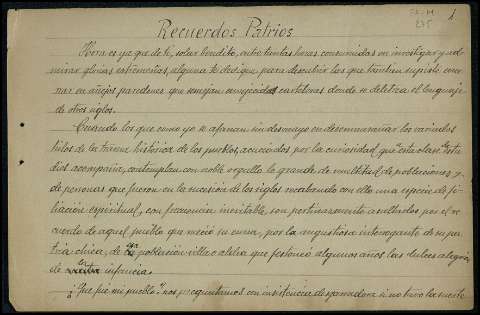 1
Recuerdos Patrios
Hora es ya que de ti, solar bendito, entre tantas horas consumidas en investigar y ad-
mirar glorias extremeñas, alguna te dedique, para descubrir las que también supiste ence-
rrar en añejos paredones que semejan envejecidos cartelones donde se deletrea el lenguaje
de otros siglos.
Cuando los que como yo se afanan sin desmayo en desenmarañar los variados
hilos de la trama histórica de los pueblos, acuciados por la curiosidad que esta clase de estu-
dios acompaña, contemplan con noble orgullo lo grande de multitud de poblaciones y
de personas que fueron en la sucesión de los siglos recabando con ello una especie de fi-
liación espiritual, con frecuencia inevitable, son pertinazmente asaltados por el re-
cuerdo de aquel pueblo que meció su cuna, por la angustiosa interrogante de su pa-
tria chica, de esa población villa o aldea que festoneó algunos años las dulces alegrías
de la infancia.
¿Que fue mi pueblo? nos preguntamos con insistencia desganadora si no tuvo la suerte